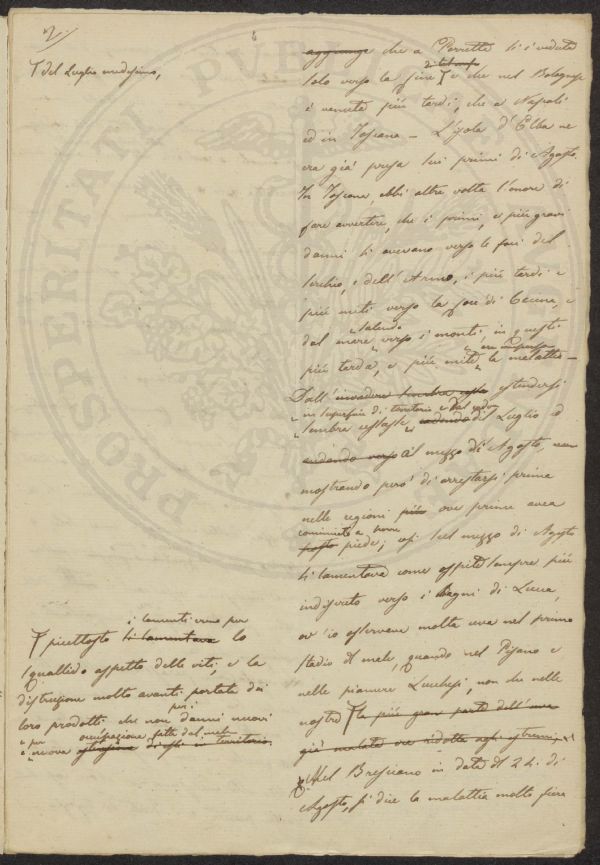 2.
T del Luglio medesimo,
aggiunge che a Porretta si è veduta
solo verso la fine T e che nel Bolognese
è venuta più tardi, che a Napoli
ed in Toscana — L'isola d'Elba ne
era già presa sui primi di Agosto.
In Toscana, ebbi altra volta l'onore di
fare avvertire, che i primi, e più gravi
danni si avevano verso le foci del
Serchio, e dell'Arno, i più tardi e
più miti verso la foce di Cecina, e
salendo
dal mare verso i monti, in questi
più tarda, e più mite la malattia —
Dall' invadere estendersi
in superficie di territorio e dal
sembra di Luglio
andando verso al mezzo di Agosto, non
mostrando però di arrestarsi prima
nelle regioni più ove prima avea
cominciato a porre
posto piede; così sul mezzo di Agosto
si lamentava come ospite sempre più
indiscreto verso i Bagni di Lucca,
ov' io osservava molta uva nel primo
stadio di male, quando nel Pisano e
nelle pianure Lucchesi, non che nelle
nostre T la più gran parte dell'uva
già malata era ridotta agli estremi,
Nel Bresciano in data di 24. di
Agosto, si dice la malattia molto fiera
i lamenti erano per
T piuttosto si lamentava lo
squallido aspetto delle viti, e la
distruzione molto avanti portata dei
loro prodotti che non per i danni nuovi
per occupazione fatta dal male
nuova di essi in territorio.